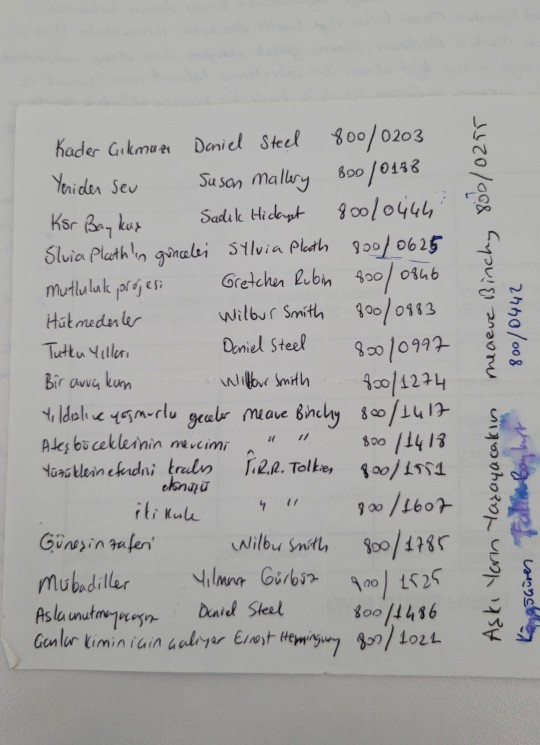 Kader Çıkmazı Daniel Steel 800/0203
Yeniden Sev Susan Mallery 800/0198
Kör Baykuş Sadık Hidayet 800/0444
Slvia Plath'in günceleri Sylvia Plath 800/0625
Mutluluk projesi Gretchen Rubin 800/0846
Hükmedenler Wilbur Smith 800/0983
Tutku Yılları Daniel Steel 800/0997
Bir avuç kum Wilbur Smith 800/1274
Yıldızlı ve yağmurlu geceler Meave Binchy 800/1417
Ateşböceklerinin mevsimi " " 800/1418
Yüzüklerin efendisi kralın J.R.R. Tolkien 800/1551
dönüşü
iki kule " " 800/1607
Güneşin zaferi Wilbur Smith 800/1785
Mübadiller Yılmaz Gürbüz 900/1525
Asla unutmayacağım Daniel Steel 800/1486
Çanlar kimin için çalıyor Ernest Hemingway 800/1021
Aşkı Yarın Yaşayacaksın meaeve Binchy 800/0255
800/0442